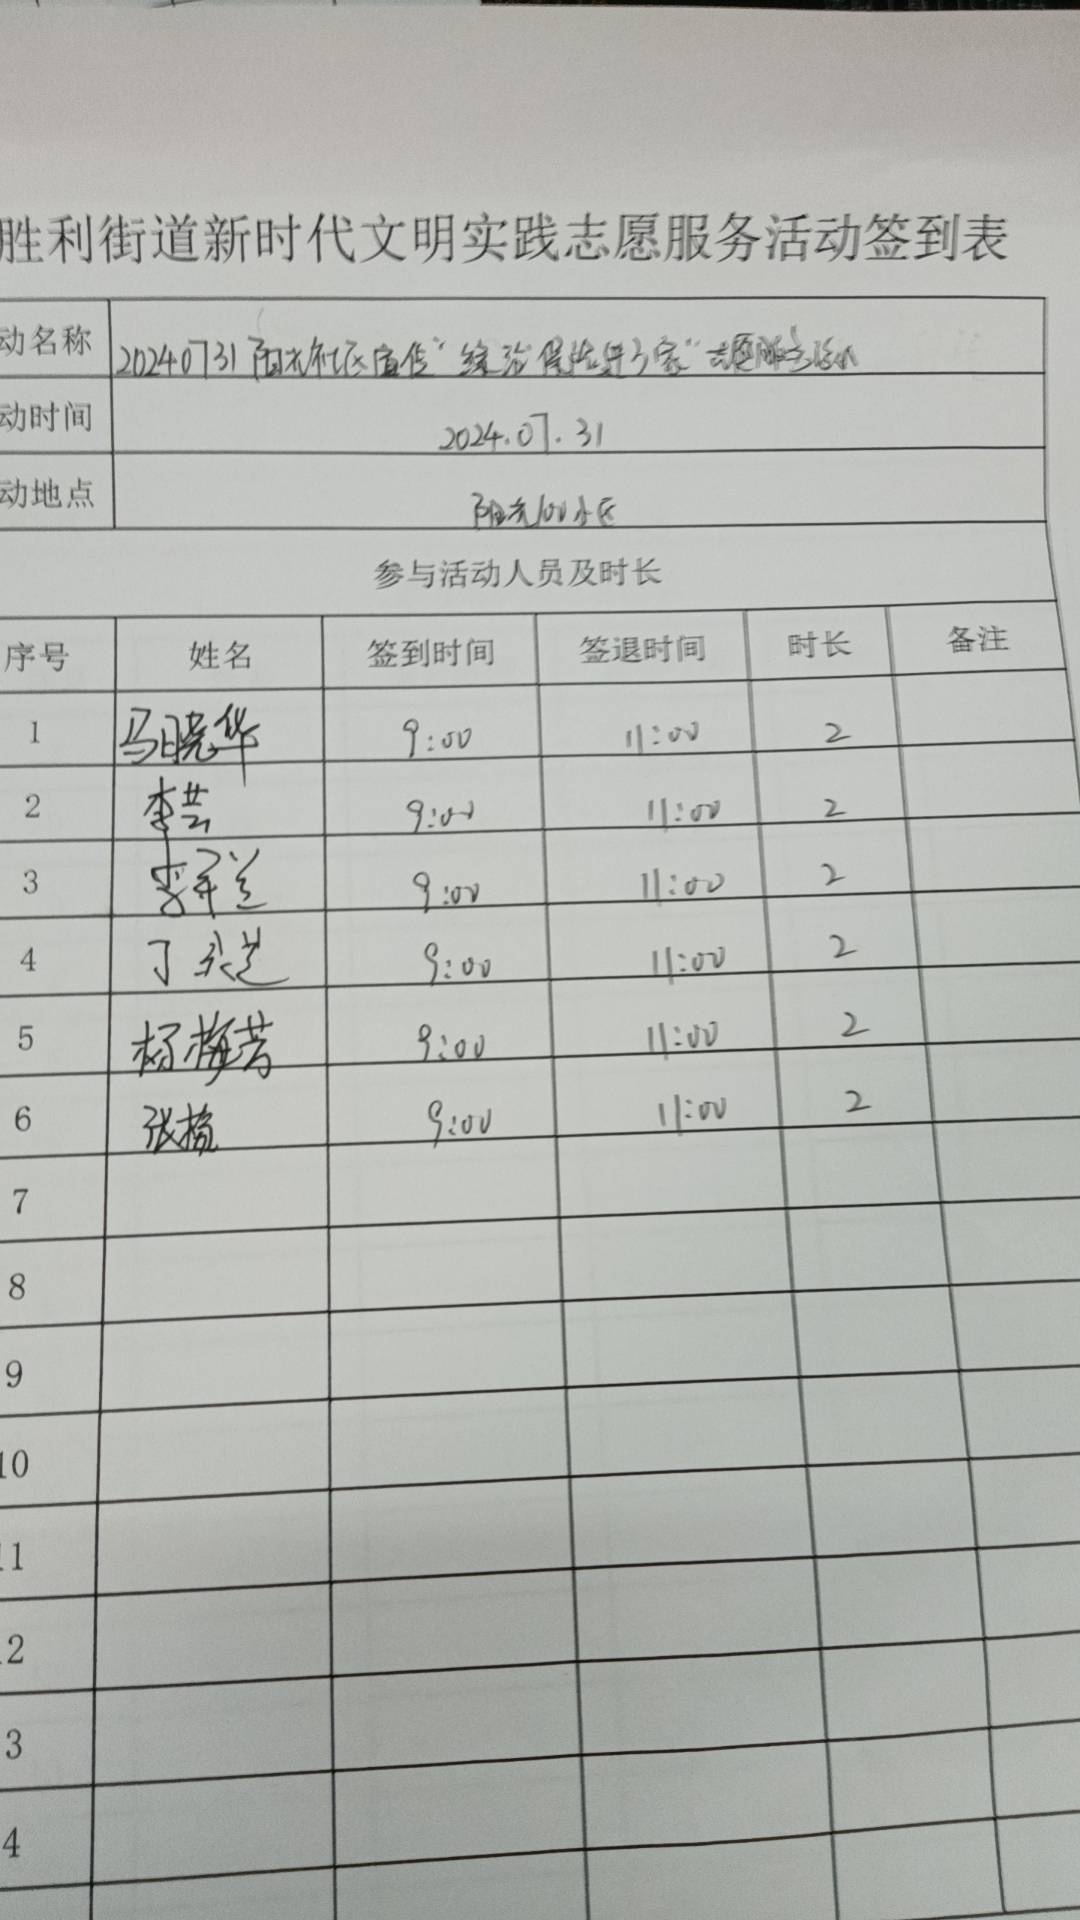 胜利街道新时代文明实践志愿服务活动签到表
动名称 20240731阳光社区宣传“综治保险进万家”志愿服务活动
动时间 2024.07.31
动地点 阳光100小区
参与活动人员及时长
序号 姓名 签到时间 签退时间 时长 备注
1 马晓华 9:00 11:00 2
2 李芸 9:00 11:00 2
3 李 兰 9:00 11:00 2
4 丁 9:00 11:00 2
5 杨梅芳 9:00 11:00 2
6 张杨 9:00 11:00 2
7
8
9
10
11
2
3
4